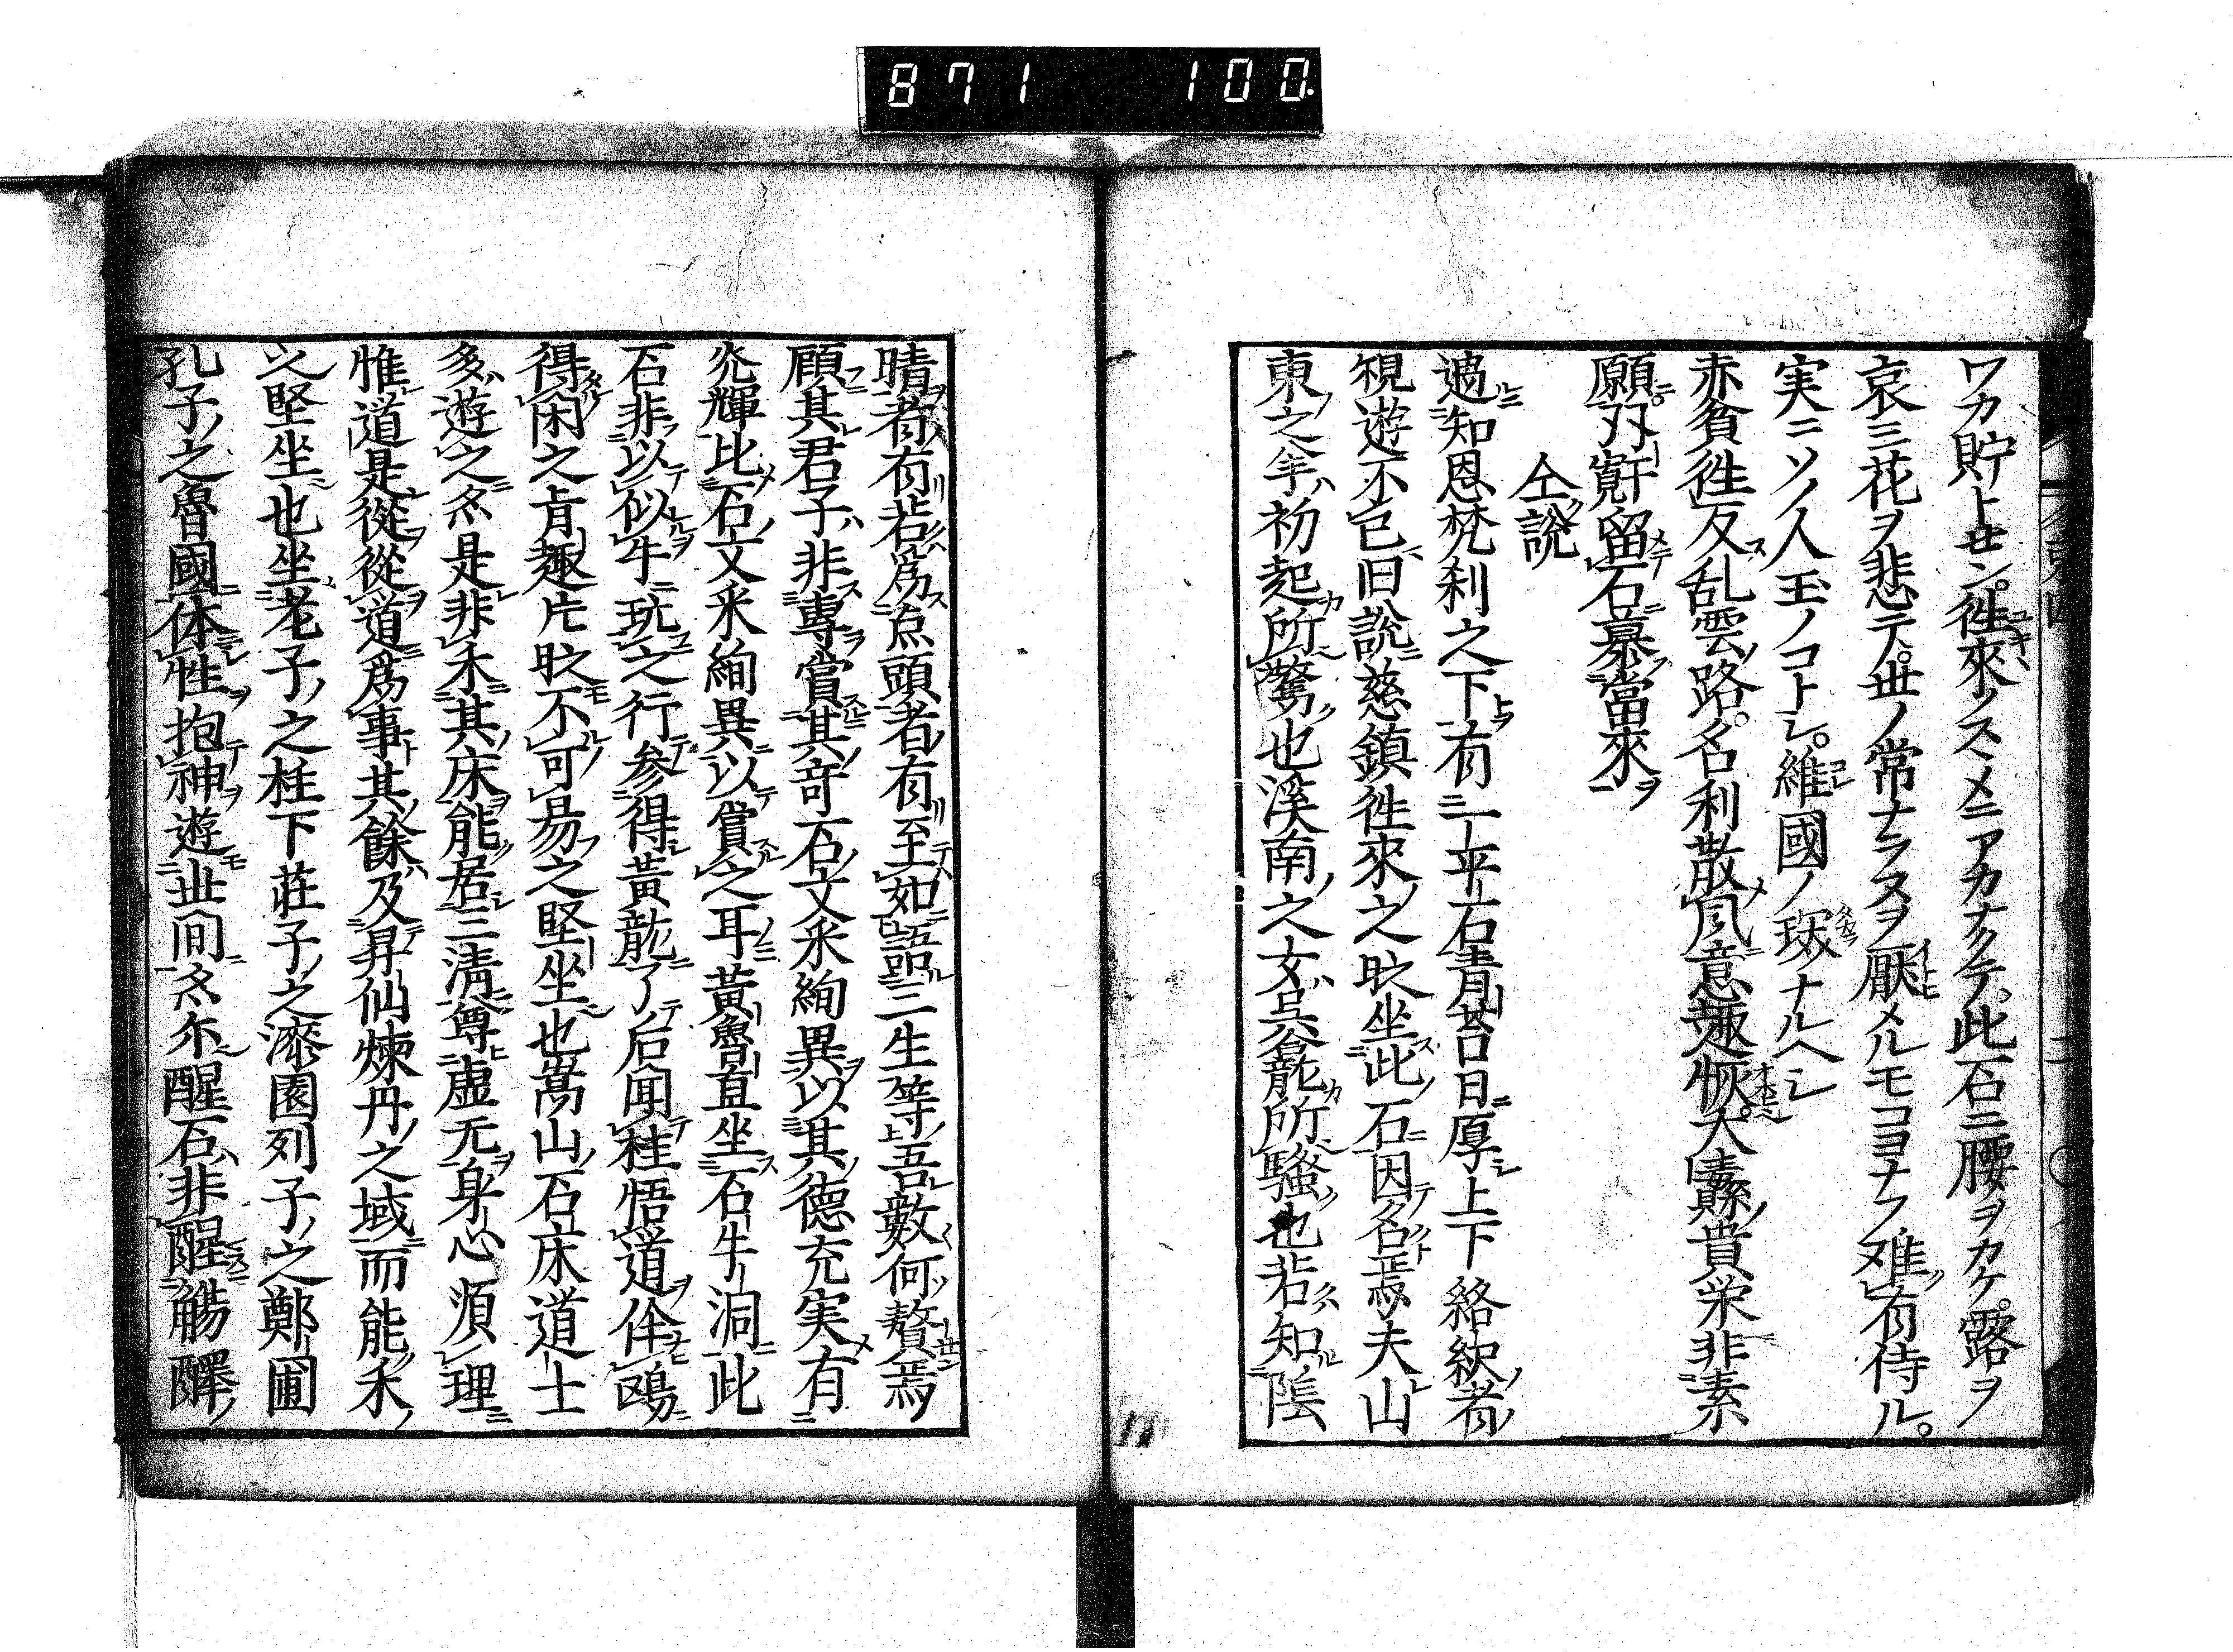 871 100
ワカ貯トセン。徃來ノスヽメニアカナクテ。此石ニ腰ヲカケ。露ヲ
哀ミ花ヲ悲テ。世ノ常ナラヌヲ厭メルモコヨナフ难有侍ル。
実ニソノ人玉ノコトシ。維國ノナルヘシ
赤貧徃反乱雲路。名利散風意趣恢。大貴栄非素
願刄留石慕當來
仝説
過知恩梵刹之下有一平石青苔日厚上下絡繹者
視遊不已旧説慈鎮徃來之時坐此石因名焉夫山
東之年初起所驚也溪南之女呉龍所騷也若知陰
晴者有若為点頭者有至如語三生等吾數何贅焉
顧其君子非專賞其奇石文釆絢異以其德充実有
光輝比石文釆絢異以賞之耳黃魯直坐石牛洞此
石非以似牛玩之行参得黃龍了后聞桂悟道伴鷗
得閑之肯趣片时不可易之堅坐也嵩山石床道士
多遊之是非禾其床能居三清尊虚无身心須理
惟道是從從道為事其餘及昇仙煉丹之域而能禾
之堅坐也坐老子之桂下莊子之漆園列子之鄭圃
孔子之魯國体性抱神遊世间尓醒石非醒觴醳